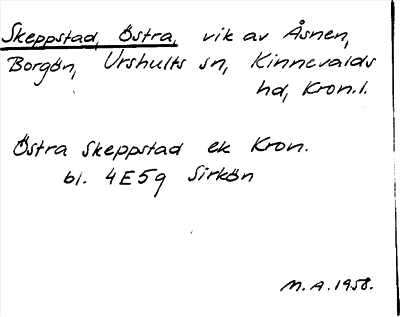 Skeppstad, Östra, vik av Åsnen,
Borgön, Urshults sn, Kinnevalds
hd, Kron.l.
Östra Skeppstad ek Kron.
bl. 4E5g Sirkön
M.A. 1958.